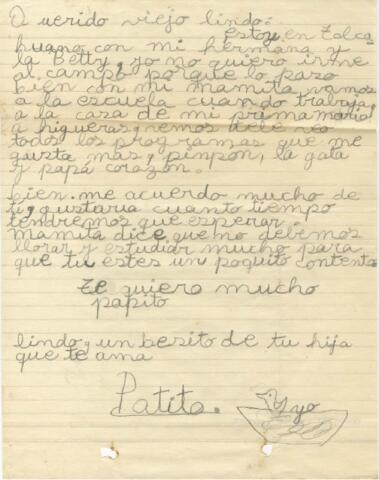 Querido viejo lindo:
estoy en Talca
huano con mi hermana y
la Betty, yo no quiero irme
al campo porque lo paso
bien con mi mamita vamos
a la escuela cuando trabaja,
a la casa de mi prima
a higueras, vemos
todos los programas que me
gusta mas, pinpon, la gata
y papá corazón.
bien. me acuerdo mucho de
ti, gustaria cuanto tiempo
tendremos que esperar
mamita dice que no debemos
llorar y estudiar mucho para
que tu estes un poquito contento
te quiero mucho
papito
lindo, un besito de tu hija
que te ama
Patita.
yo